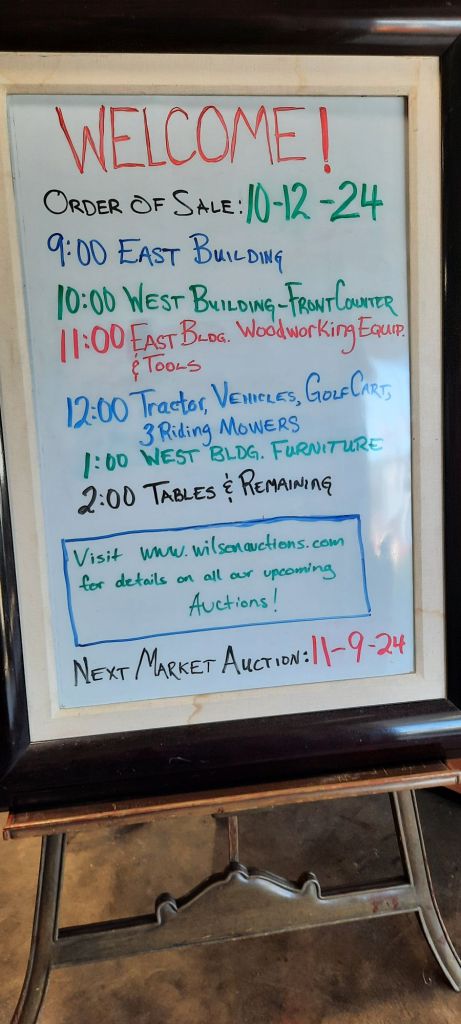 WELCOME!
ORDER OF SALE: 10-12-24
9:00 EAST BUILDING
10:00 WEST BUILDING-FRONT COUNTER
11:00 EAST BLDG. WoodworKing EQUIP.
& TOOLS
12:00 Tractor, VEHICLES, GOLF CART,
3 Riding MOWERS
1:00 WEST BLDG. FURNITURE
2:00 TABLES & REMAINING
Visit www.wilsonauctions.com
for details on all our upcoming
Auctions!
NEXT MARKET AUCTION: 11-9-24